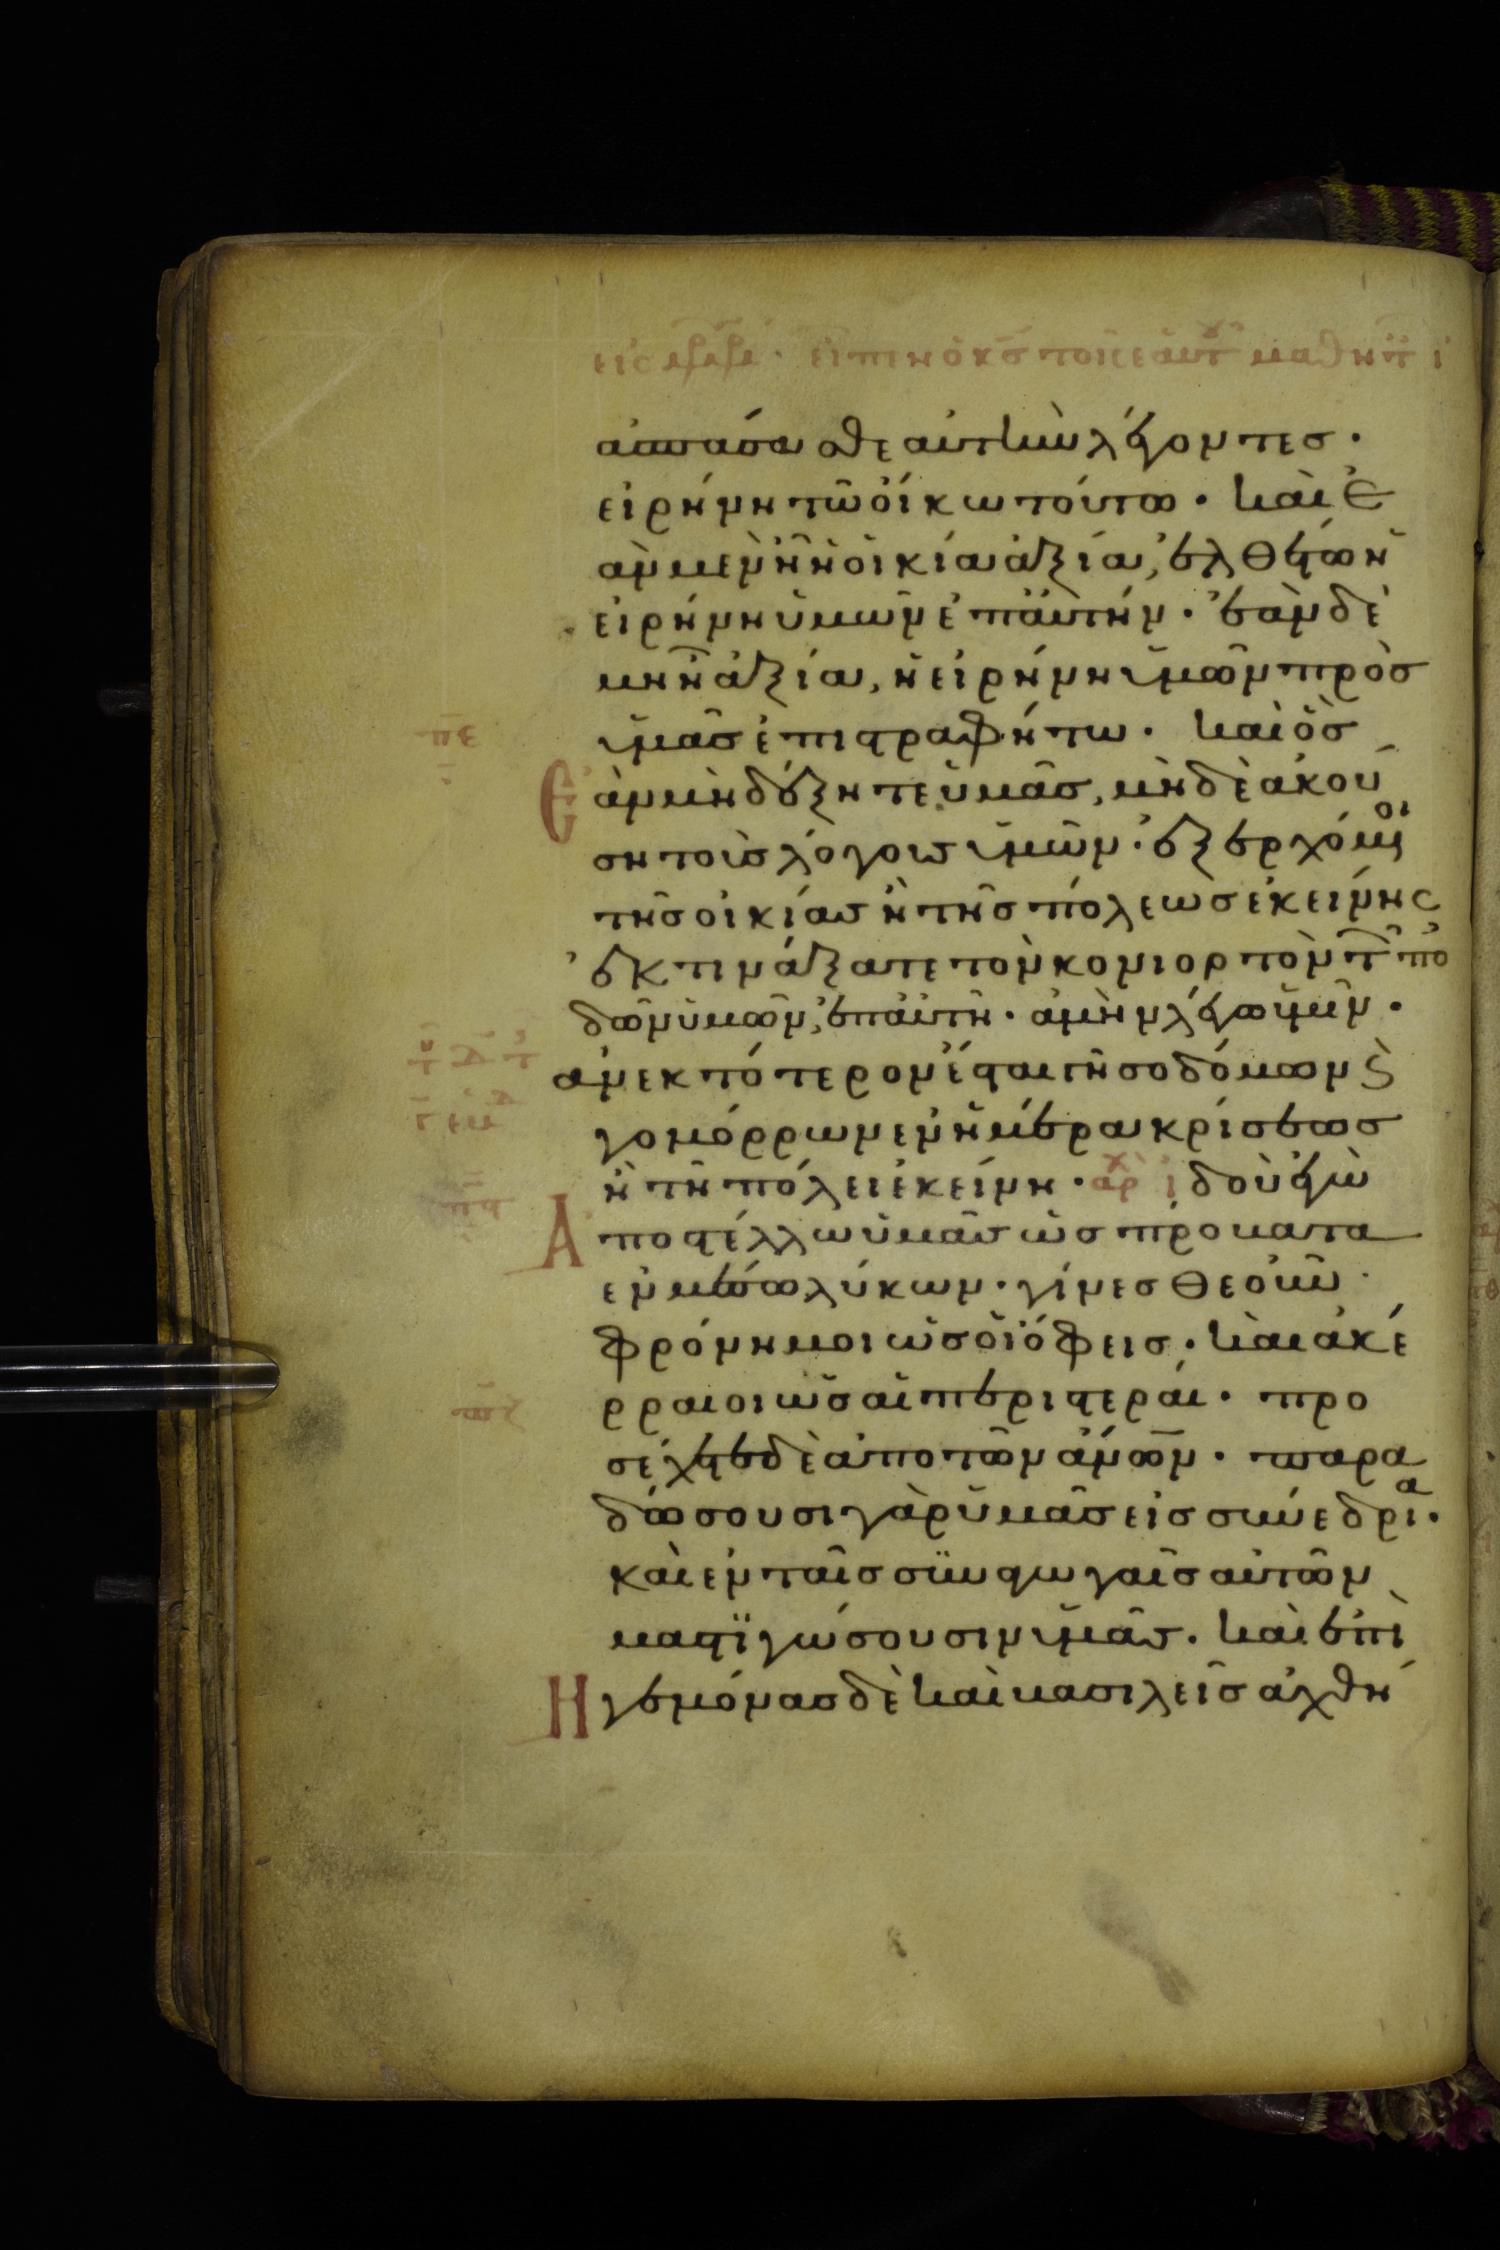 ἀσπάσασθε αὐτὴν λέγοντες·
εἰρήνη τῶ οἴκω τούτω· καὶ ἐ
ὰν μὲν ἦ ἡ οἰκία ἀξία, ἐλθέτω ἡ
εἰρήνη ὑμῶν ἐπ αὐτήν· ἐὰν δὲ
μὴ ἦ ἀξία, ἡ εἰρήνη ὑμῶν πρὸσ
ὑμᾶσ ἐπιστραφήτω· καὶ ὃσ
Ἐὰν μὴ δέξητε ὑμᾶσ, μὴ δὲ ἀκού
ση τοὺσ λόγουσ ὑμῶν· ἐξερχόμενοι
τῆσ οἰκίασ ἢ τῆσ πόλεωσ ἐκείνης
ἐκτινάξατε τὸν κονιορτὸν τῶν πο
δῶν ὑμῶν, ἐπ αὐτῆ· ἀμὴν λέγω ὑμῖν·
ἀνεκτότερον ἔσται γῆ σοδόμων ϗ
γομόρρων ἐν ἡμέρα κρίσεωσ
ἢ τῆ πόλει ἐκείνη· ἀρχ ἰδοὺ ἐγὼ
Ἀποστέλλω ὑμᾶσ ὡσ πρόβατα
ἐν μέσω λύκων· γίνεσθε οὖν
φρόνημοι ὡσ οἱ ὄφεισ· καὶ ἀκέ
ρραιοι ὡσ αἱ περιστεραί· προ
σέχετε δὲ ἀπο τῶν ἀνων· παρα
δώσουσι γὰρ ὑμᾶσ εἰσ συνέδρια·
καὶ ἐν ταῖσ συναγωγαῖσ αὐτῶν
μαστιγώσουσιν ὑμᾶσ· καὶ ἐπὶ
Ἡγεμόνασ δὲ καὶ βασιλεῖσ ἀχθή